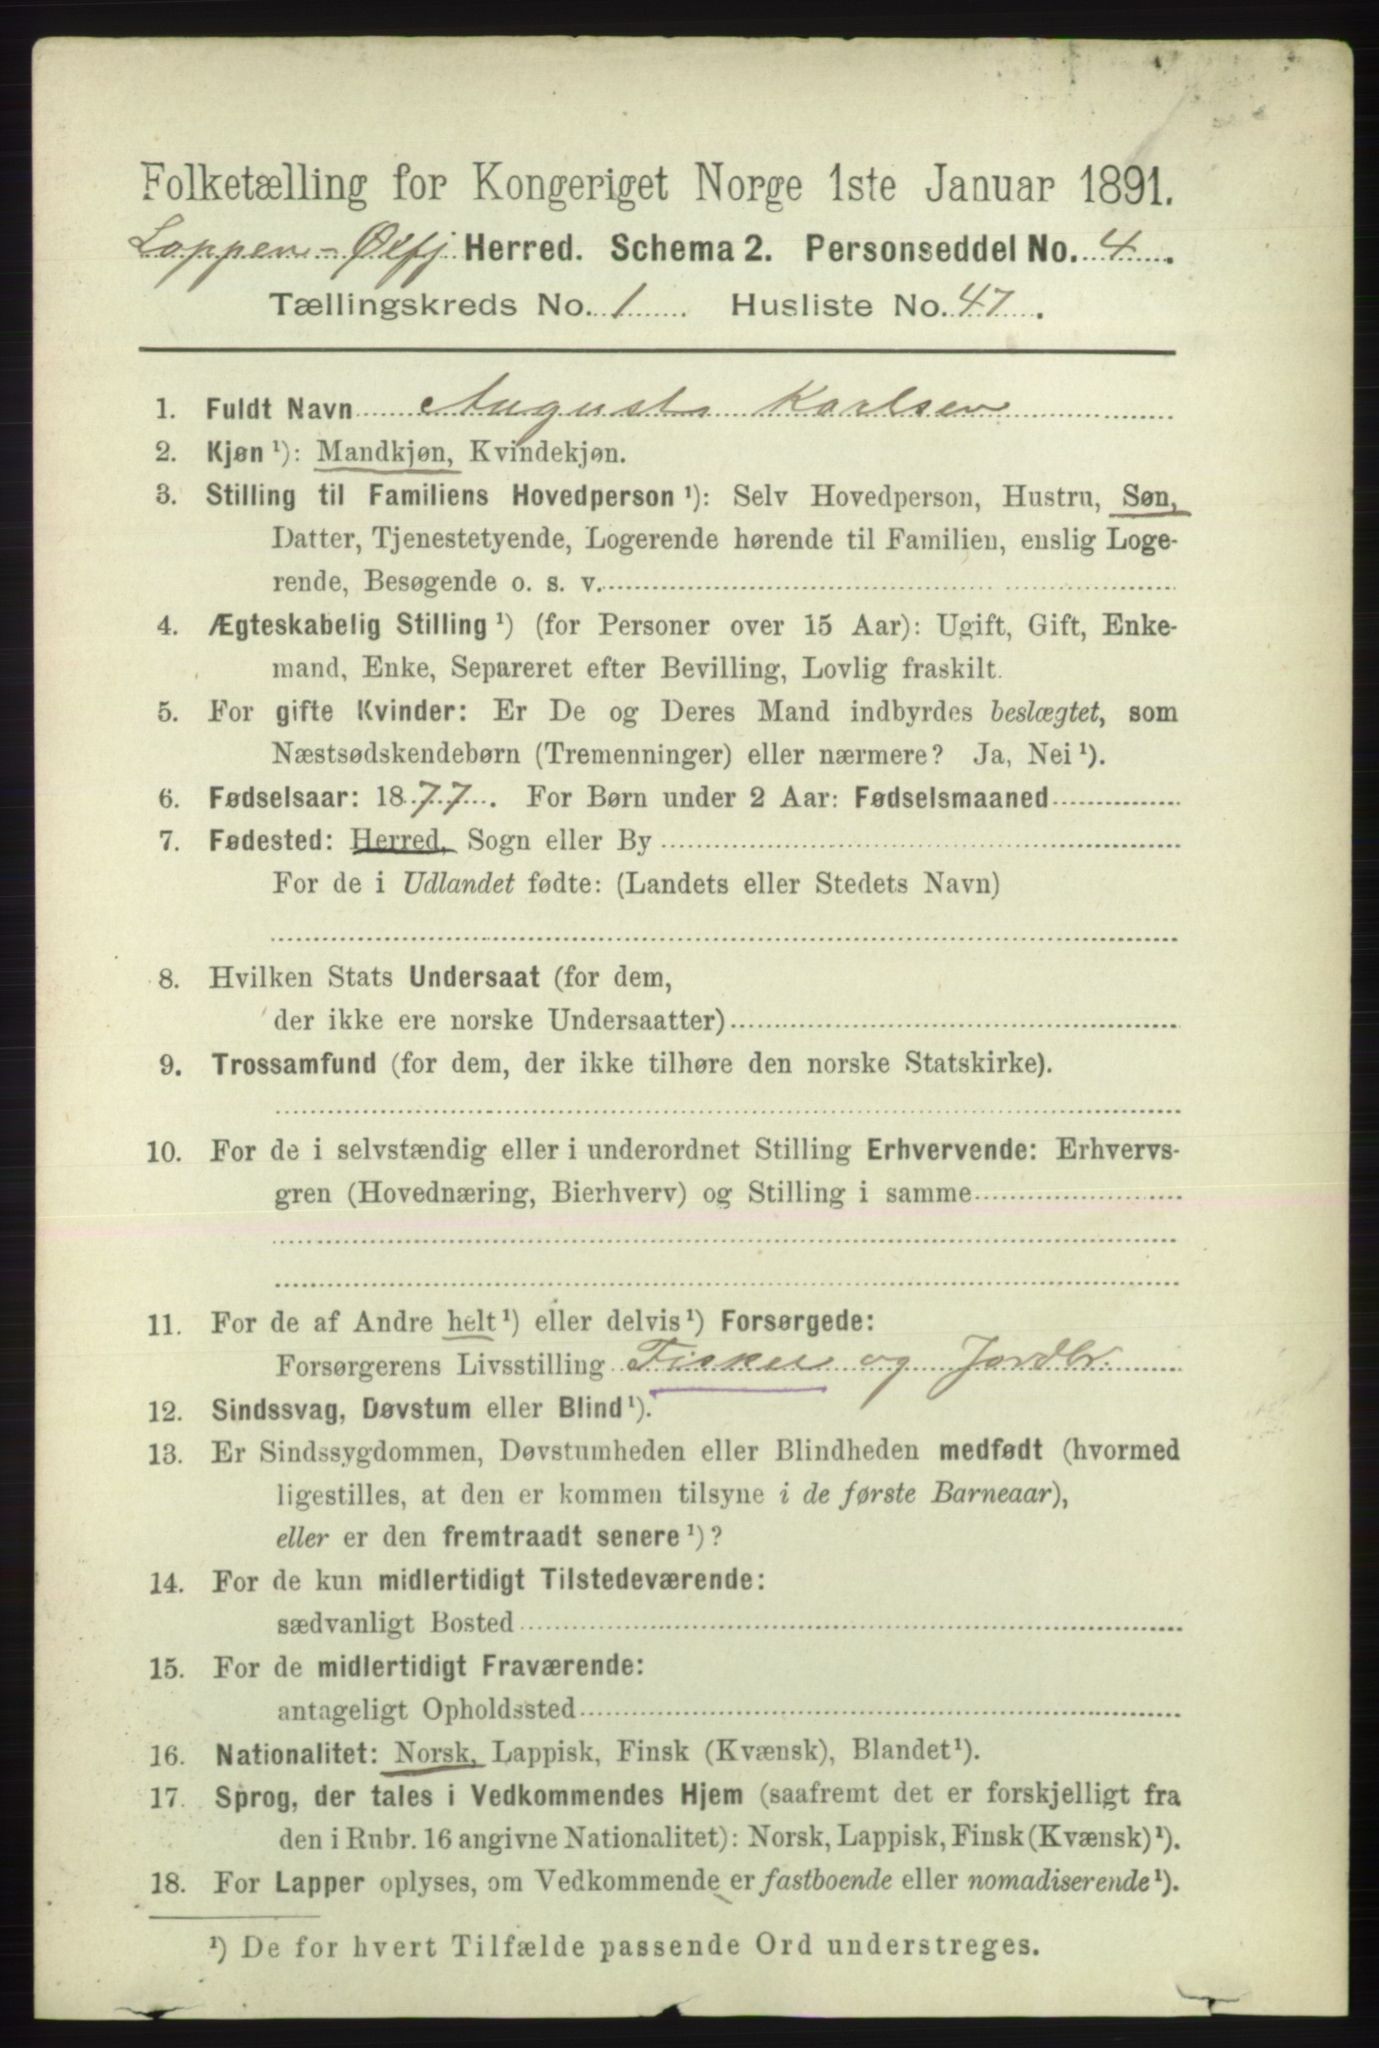 Folketælling for Kongeriget Norge 1ste Januar 1891.
Loppen-Øxfj Herred. Schema 2. Personseddel No. 4.
Tællingskreds No. 1 Husliste No. 47.
1. Fuldt Navn August Karlsen
2. Kjøn ¹): Mandkjøn, Kvindekjøn.
3. Stilling til Familiens Hovedperson ¹): Selv Hovedperson, Hustru, Søn,
Datter, Tjenestetyende, Logerende hørende til Familien, enslig Loge-
rende, Besøgende o. s. v.
4. Ægteskabelig Stilling ¹) (for Personer over 15 Aar): Ugift, Gift, Enke-
mand, Enke, Separeret efter Bevilling, Lovlig fraskilt.
5. For gifte Kvinder: Er De og Deres Mand indbyrdes beslægtet, som
Næstsødskendebørn (Tremenninger) eller nærmere? Ja, Nei ¹).
6. Fødselsaar: 1877. For Børn under 2 Aar: Fødselsmaaned
7. Fødested: Herred, Sogn eller By
For de i Udlandet fødte: (Landets eller Stedets Navn)
8. Hvilken Stats Undersaat (for dem,
der ikke ere norske Undersaatter)
9. Trossamfund (for dem, der ikke tilhøre den norske Statskirke).
10. For de i selvstændig eller i underordnet Stilling Erhvervende: Erhvervs-
gren (Hovednæring, Bierhverv) og Stilling i samme
11. For de af Andre helt ¹) eller delvis ¹) Forsørgede:
Forsørgerens Livsstilling Fisker og Jordbr.
12. Sindssvag, Døvstum eller Blind ¹).
13. Er Sindssygdommen, Døvstumheden eller Blindheden medfødt (hvormed
ligestilles, at den er kommen tilsyne i de første Barneaar),
eller er den fremtraadt senere ¹)?
14. For de kun midlertidigt Tilstedeværende:
sædvanligt Bosted
15. For de midlertidigt Fraværende:
antageligt Opholdssted
16. Nationalitet: Norsk, Lappisk, Finsk (Kvænsk), Blandet ¹).
17. Sprog, der tales i Vedkommendes Hjem (saafremt det er forskjelligt fra
den i Rubr. 16 angivne Nationalitet): Norsk, Lappisk, Finsk (Kvænsk) ¹).
18. For Lapper oplyses, om Vedkommende er fastboende eller nomadiserende ¹).
¹) De for hvert Tilfælde passende Ord understreges.